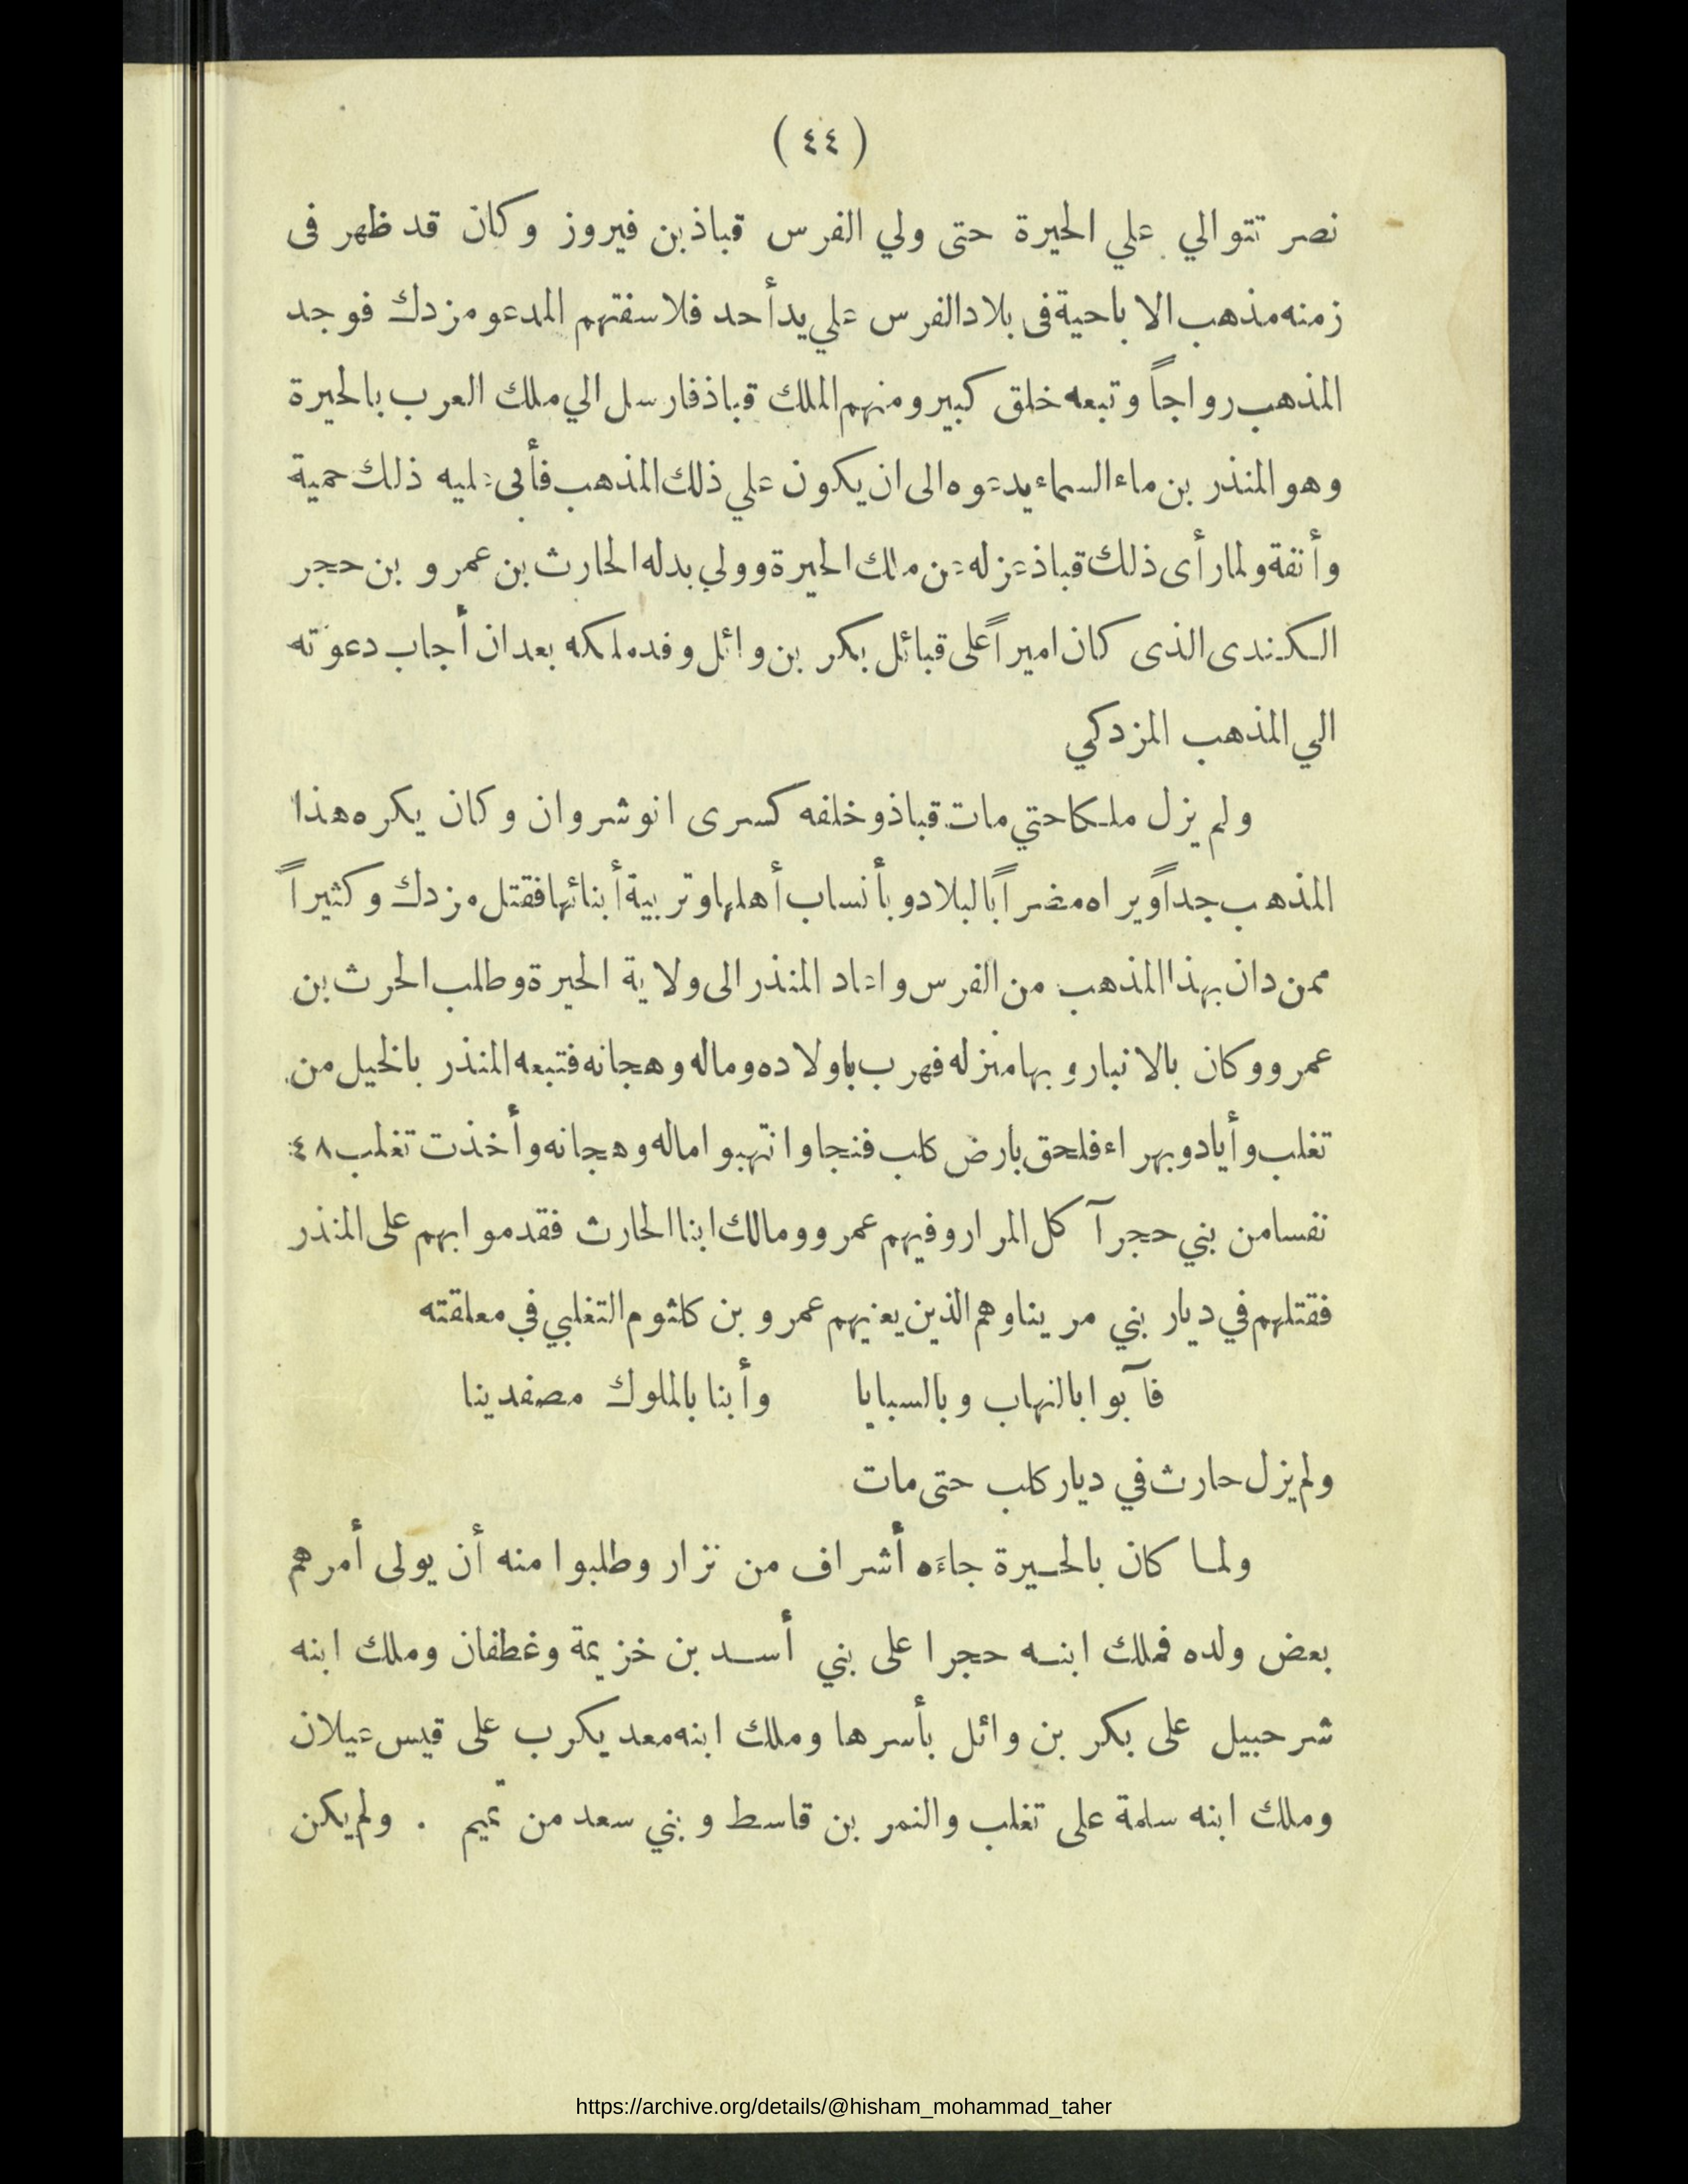 ( ٤٤ )
نصر تتوالي علي الحيرة حتى ولي الفرس قباذ بن فيروز وكان قد ظهر فى
زمنه مذهب الاباحية فى بلاد الفرس علي يد أحد فلاسفتهم المدعو مزدك فوجد
المذهب رواجاً وتبعه خلق كبير ومنهم الملك قباذ فارسل الي ملك العرب بالحيرة
وهو المنذر بن ماء السماء يدعوه الى ان يكون علي ذلك المذهب فأبى عليه ذلك حمية
وأنفة ولما رأى ذلك قباذ عزله عن ملك الحيرة وولي بدله الحارث بن عمرو بن حجر
الكندى الذى كان اميراً على قبائل بكر بن وائل وفد ملكه بعد ان أجاب دعوته
الي المذهب المزدكي
ولم يزل ملكا حتي مات قباذ وخلفه كسرى انوشروان وكان يكره هذا
المذهب جداً ويراه مضراً بالبلاد وبأنساب أهلها وتربية أبنائها فقتل مزدك وكثيراً
ممن دان بهذا المذهب من الفرس واعاد المنذر الى ولاية الحيرة وطلب الحرث بن
عمرو وكان بالانبار وبها منزله فهرب باولاده وماله وهجانه فتبعه المنذر بالخيل من
تغلب وأياد وبهراء فلحق بارض كلب فنجا وانتهبوا ماله وهجانه وأخذت تغلب ٤٨
نفسا من بني حجر آكل المرار وفيهم عمرو ومالك ابنا الحارث فقدموا بهم على المنذر
فقتلهم في ديار بني مرينا وهم الذين يعنيهم عمرو بن كلثوم التغلبي في معلقته
فآبوا بالنهاب وبالسبايا وأبنا بالملوك مصفدينا
ولم يزل حارث في ديار كلب حتى مات
ولما كان بالحيرة جاءَه أشراف من نزار وطلبوا منه أن يولى أمرهم
بعض ولده فملك ابنه حجرا على بني أسد بن خزيمة وغطفان وملك ابنه
شرحبيل على بكر بن وائل بأسرها وملك ابنه معد يكرب على قيس عيلان
وملك ابنه سلمة على تغلب والنمر بن قاسط وبني سعد من تميم . ولم يكن
https://archive.org/details/@hisham_mohammad_taher